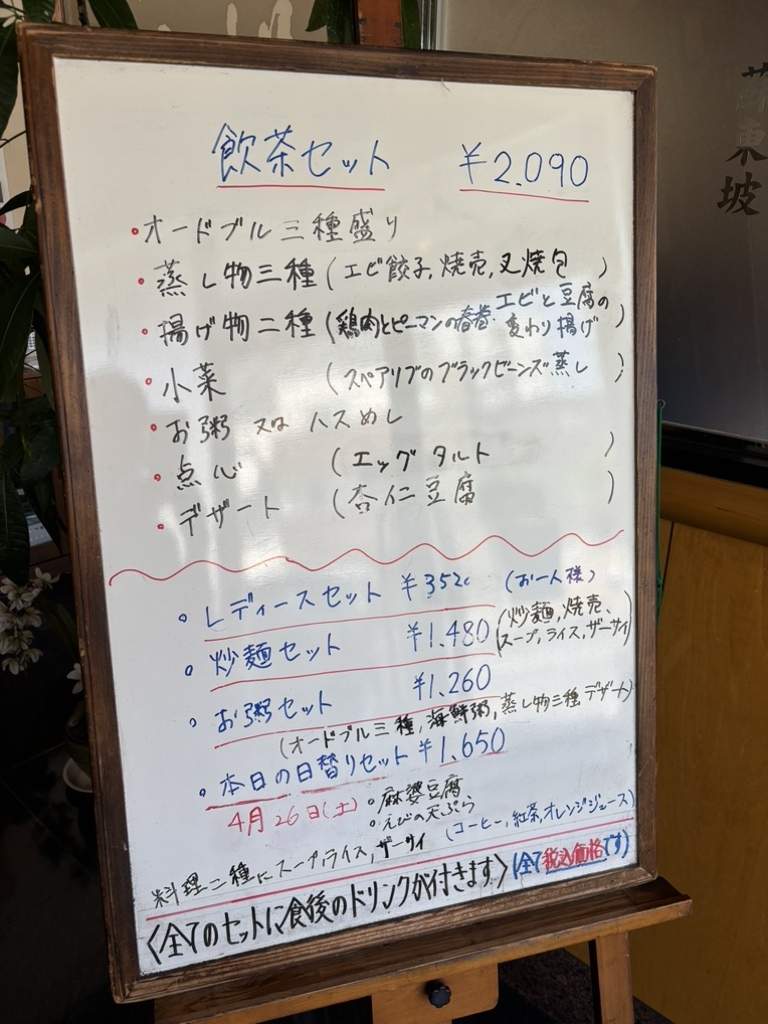 飲茶セット ¥2.090
・オードブル三種盛り
・蒸し物三種(エビ餃子,焼売,叉焼包)
・揚げ物二種(鶏肉とピーマンの春巻・エビと豆腐の変わり揚げ)
・小菜 (スペアリブのブラックビーンズ蒸し)
・お粥 又は ハスめし
・点心 (エッグタルト)
・デザート (杏仁豆腐)
。レディースセット ¥352 (お一人様)
。炒麺セット ¥1.480 (炒麺,焼売、スープ,ライス,ザーサイ)
。お粥セット ¥1.260
(オードブル三種,海鮮粥,蒸し物三種,デザート)
。本日の日替りセット ¥1.650
4月26日(土) 。麻婆豆腐
。えびの天ぷら
料理二種にスープ,ライス,ザーサイ (コーヒー,紅茶,オレンジジュース)
〈全てのセットに食後のドリンクが付きます〉(全て税込価格です)
東坡